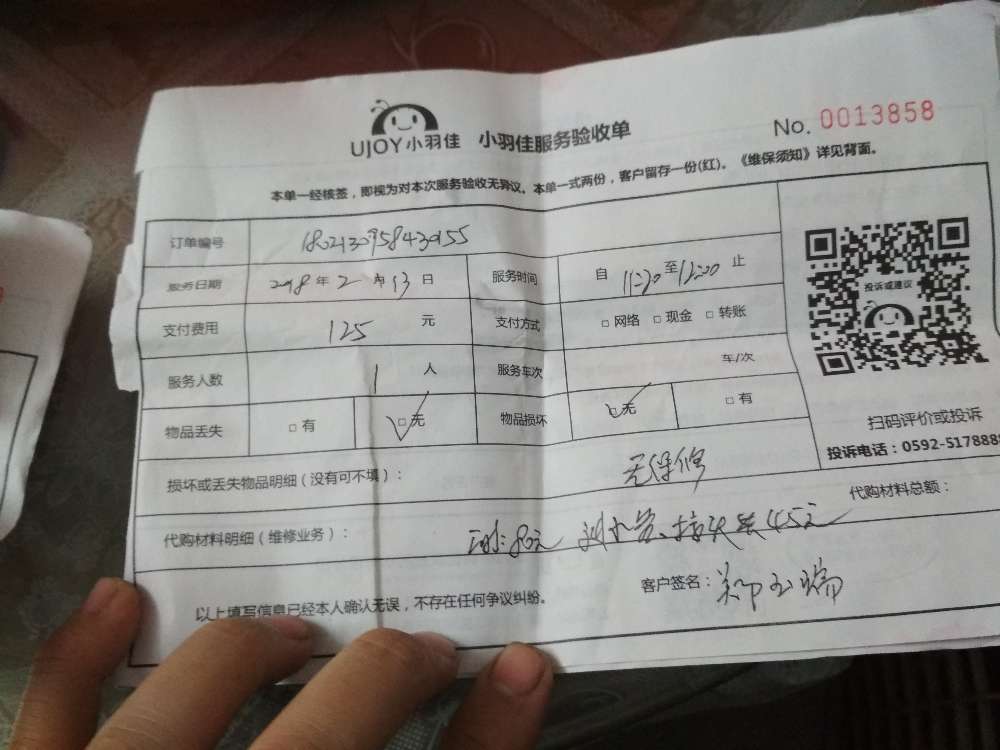 UJOY小羽佳 小羽佳服务验收单 No. 0013858
本单一经核签，即视为对本次服务验收无异议。本单一式两份，客户留存一份(红)。《维保须知》详见背面。
订单编号
服务日期 2018年2月13日 服务时间 自 11:30 至 12:00 止
支付费用 125 元 支付方式 □网络 □现金 □转账
服务人数 1 人 服务车次 车/次
物品丢失 □有 □无 物品损坏 □无 □有
投诉或建议
扫码评价或投诉
投诉电话：0592-5178888
损坏或丢失物品明细（没有可不填）： 无保修
代购材料明细（维修业务）： 80元 45元 代购材料总额：
客户签名：郑玉瑞
以上填写信息已经本人确认无误，不存在任何争议纠纷。